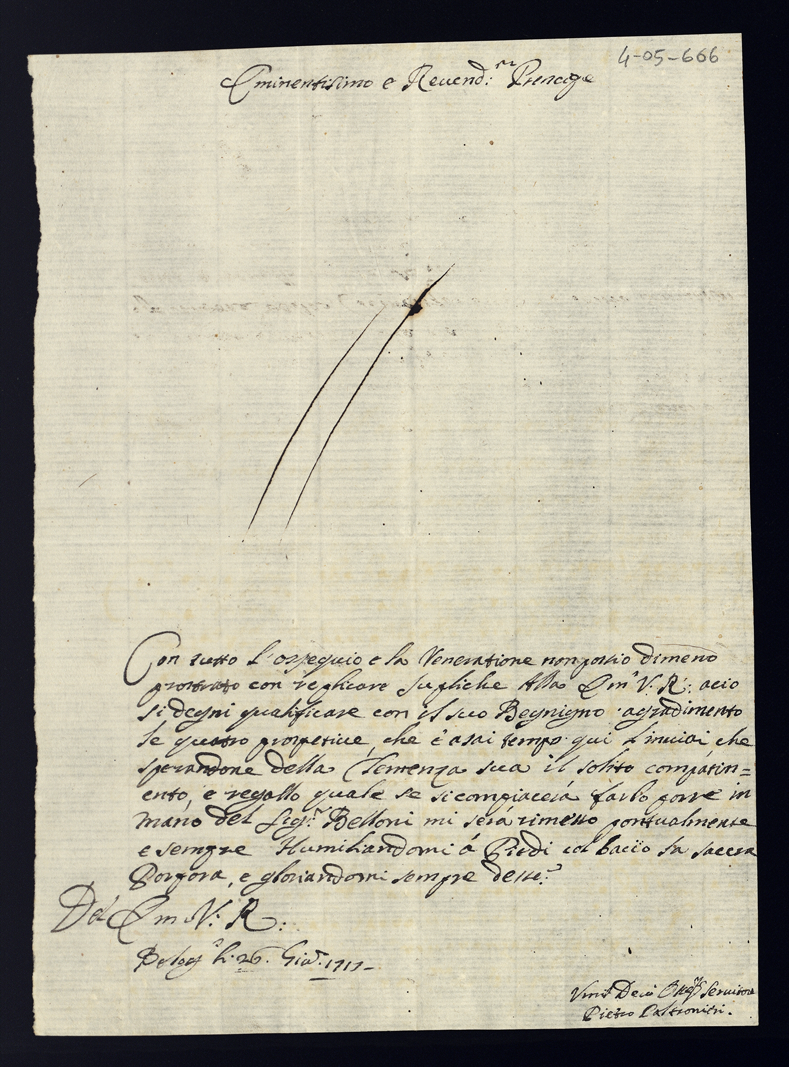 4-05-666
Eminentissimo e Reuend:mo Prencipe
Con tutto l'ossequio e la Veneratione non posso dimeno
prostrato con replicare supliche Alla Em.a V. R. acio
si degni qualificare con il suo Begnigno agradimento
le quatro prospetiue, che è asai tempo qui l'inuiai che
sperandone della Clemenza sua il solito compatim=
ento, e regallo quale se si compiacerà farlo porre in
mano del Sig.r Belloni mi serà rimesso pontualmente
e sempre Humiliandomi à Piedi col bacio la sacra
Porpora, e gloriandomi sempre desse.e
Del Em V. R.
Bolog.a li 26. Gia.o 1717
Um.o Deuo Obliga.mo Seruitore
Pietro Paltronieri.